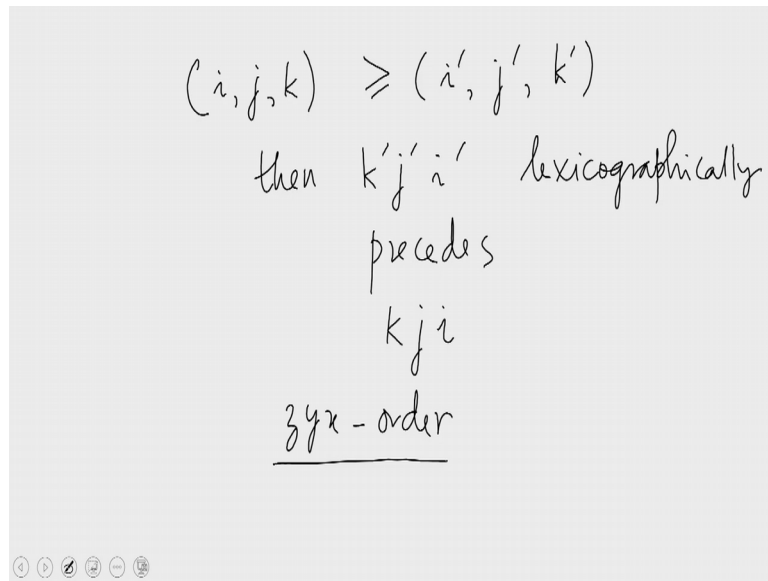 (i, j, k) ⩾ (i′, j′, k′)
then k′j′i′ lexicographically
precedes
kji
zyx - order